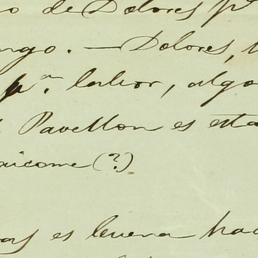 o de Dolores pr
ngo. — Dolores,
pn. labor, algo
Pavellon es esta
aicome (?)
as es buena hac